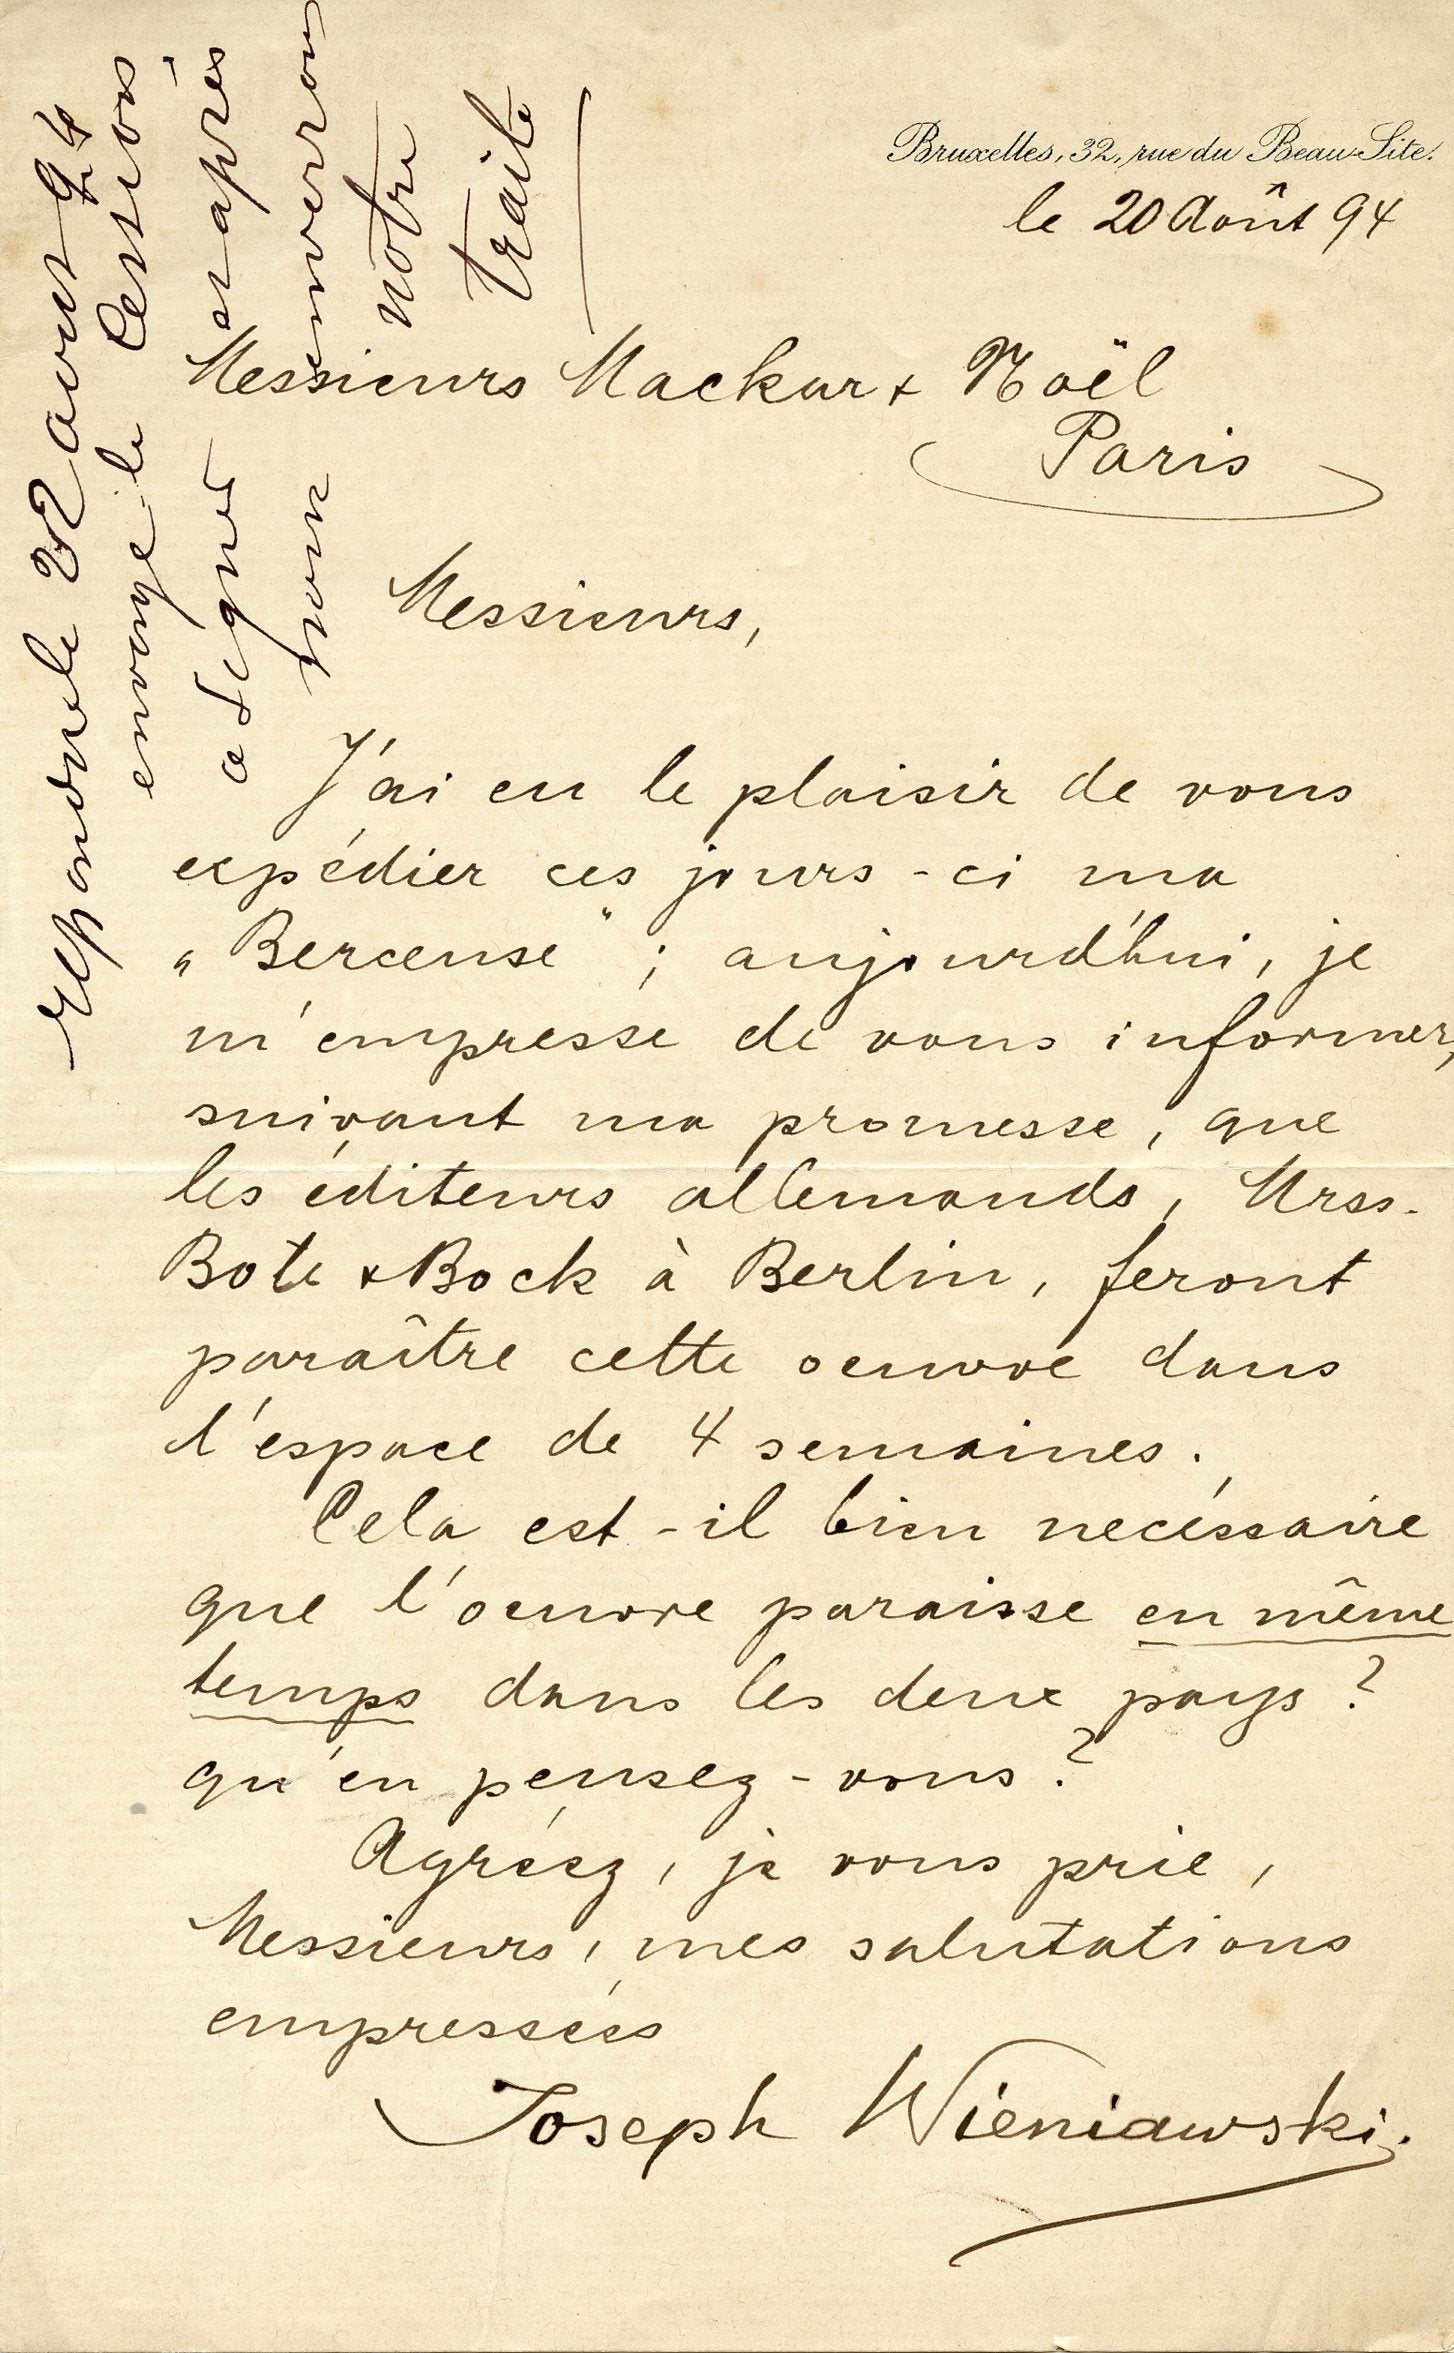 Bruxelles, 32, rue du Beau-Site.
le 20 Août 94
Messieurs Mackar & Noël
Paris
Messieurs,
J'ai eu le plaisir de vous
expédier ces jours-ci ma
„Berceuse“ ; aujourd'hui, je
m'empresse de vous informer,
suivant ma promesse, que
les éditeurs allemands, Mrss.
Bote & Bock à Berlin, feront
paraître cette oeuvre dans
l'espace de 4 semaines.
Cela est-il bien necéssaire
que l'oeuvre paraisse en même
temps dans les deux pays ?
qu'en pensez-vous ?
Agréez, je vous prie,
Messieurs, mes salutations
empressées
Joseph Wieniawski.
repondre le 22 aout 94
envoyé le Cession
a signer et après
nous enverrons
notre
traité